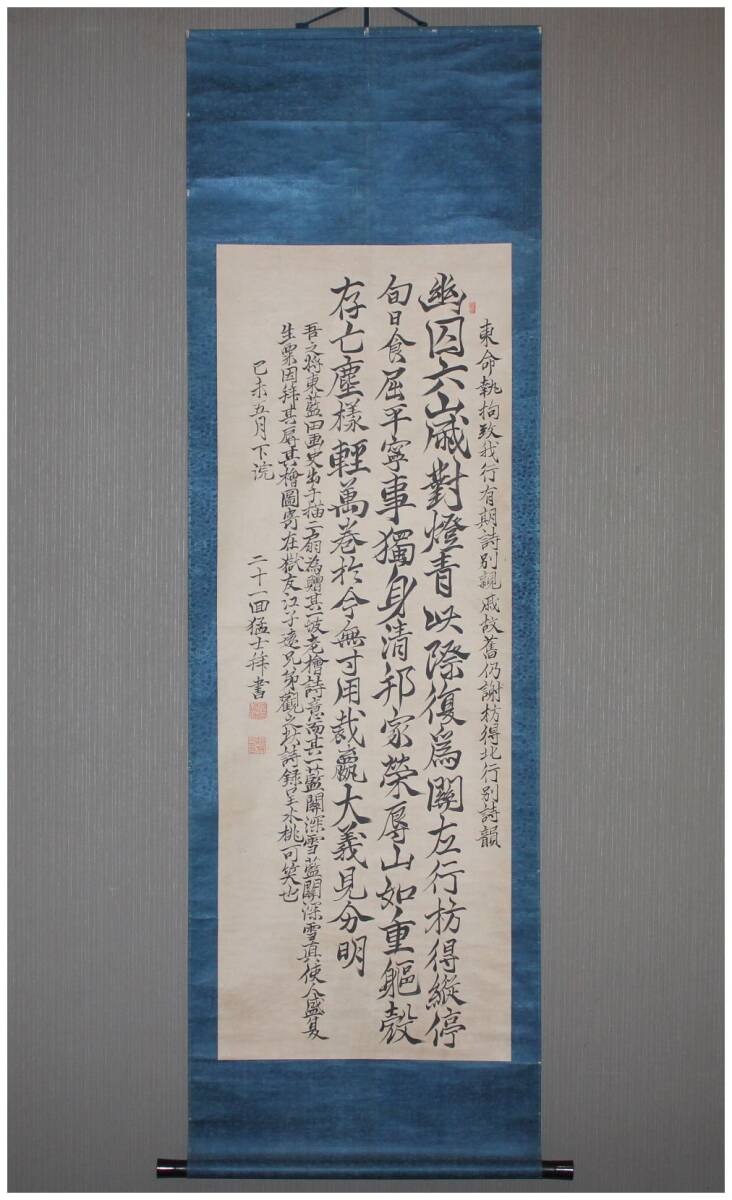 東命執拘致我行有期詩別親戚故舊仍謝枋得北行別詩韻
幽囚六歲對燈青此際復爲關左行枋得縱停
旬日食屈平寧事獨身清邦家榮辱山如重軀殼
存亡塵樣輕萬卷於今無寸用裁嬴大義見分明
吾之將東藍田画史出手描二扇為贈其一坡老檜詩意而其一藍關深雪藍關深雪真使人盛夏
生粟因拜其辱其檜圖寄在獄友江子遠兄弟觀之拙詩録呈木桃可笑也
己未五月下浣
二十一回猛士拜書